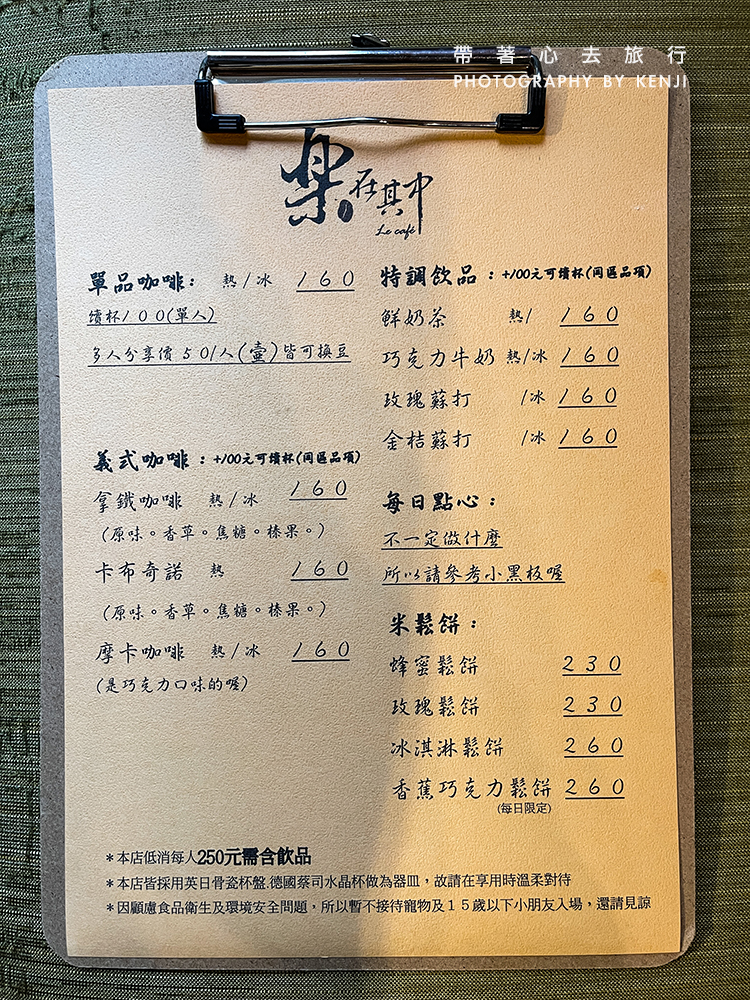 帶著心去旅行
PHOTOGRAPHY BY KENJI
樂在其中
Le café
單品咖啡： 熱/冰 160
續杯100(單人)
多人分享價 50/人(壺)皆可換豆
義式咖啡：+100元可續杯(同區品項)
拿鐵咖啡 熱/冰 160
(原味。香草。焦糖。榛果。)
卡布奇諾 熱 160
(原味。香草。焦糖。榛果。)
摩卡咖啡 熱/冰 160
(是巧克力口味的喔)
特調飲品：+100元可續杯(同區品項)
鮮奶茶 熱/ 160
巧克力牛奶 熱/冰 160
玫瑰蘇打 /冰 160
金桔蘇打 /冰 160
每日點心：
不一定做什麼
所以請參考小黑板喔
米鬆餅：
蜂蜜鬆餅 230
玫瑰鬆餅 230
冰淇淋鬆餅 260
香蕉巧克力鬆餅 260
(每日限定)
＊本店低消每人250元需含飲品
＊本店皆採用英日骨瓷杯盤.德國蔡司水晶杯做為器皿，故請在享用時溫柔對待
＊因顧慮食品衛生及環境安全問題，所以暫不接待寵物及１５歲以下小朋友入場，還請見諒